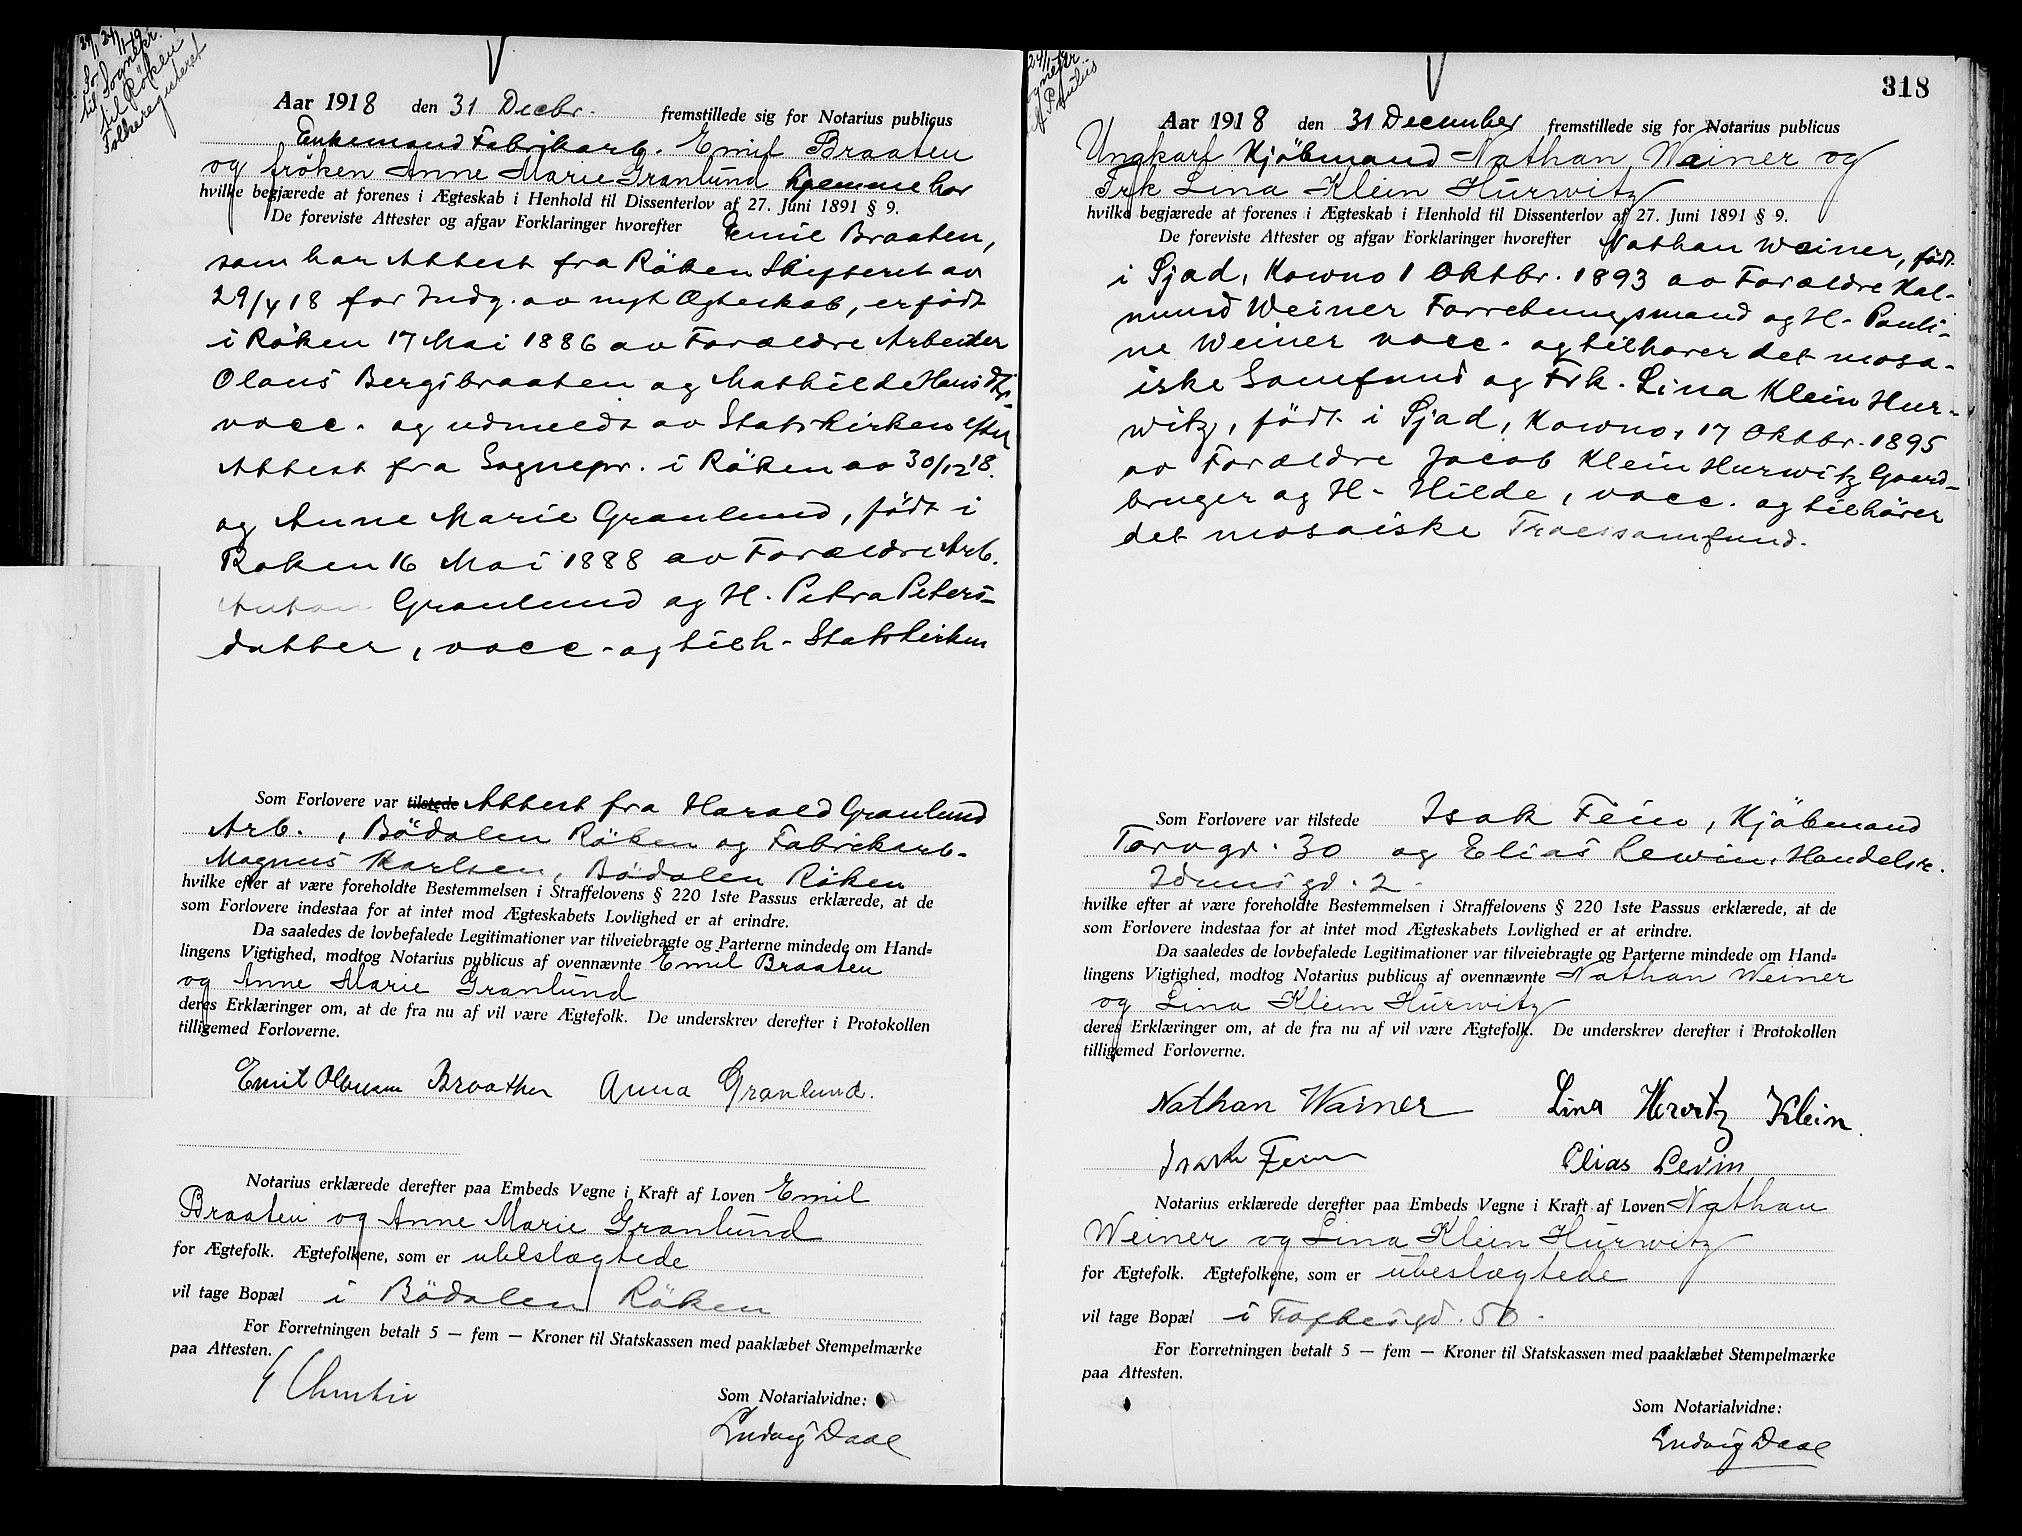 24/1-19
til Sognepr.
til Röken
Folkeregisteret
Aar 1918 den 31 Decbr. fremstillede sig for Notarius publicus
Enkemand Fabrikarb. Emil Braaten
og fröken Anne Marie Granlund hjemmehør
hvilke begjærede at forenes i Ægteskab i Henhold til Dissenterlov af 27. Juni 1891 § 9.
De foreviste Attester og afgav Forklaringer hvorefter Emil Braaten,
som har Attest fra Röken Skifteret av
29/4 18 for Indg. av nyt Ægteskab, er födt
i Röken 17 Mai 1886 av Forældre Arbeider
Olaus Bergsbraaten og Mathilde Hansdtr.
vacc. og udmeldt av Statskirken efter
Attest fra Sognepr. i Röken av 30/12 18.
og Anne Marie Granlund, födt i
Röken 16 Mai 1888 av Forældre Arb.
Anton Granlund og H. Petra Peters-
datter, vacc. og tilh. Statskirken
Som Forlovere var tilstede Attest fra Harald Granlund
Arb., Bödalen Röken og Fabrikarb.
Magnus Karlsen, Bödalen Röken
hvilke efter at være foreholdte Bestemmelsen i Straffelovens § 220 1ste Passus erklærede, at de
som Forlovere indestaa for at intet mod Ægteskabets Lovlighed er at erindre.
Da saaledes de lovbefalede Legitimationer var tilveiebragte og Parterne mindede om Hand-
lingens Vigtighed, modtog Notarius publicus af ovennævnte Emil Braaten
og Anne Marie Granlund
deres Erklæringer om, at de fra nu af vil være Ægtefolk. De underskrev derefter i Protokollen
tilligemed Forloverne.
Emil Olausen Braathen Anna Granlund.
Notarius erklærede derefter paa Embeds Vegne i Kraft af Loven Emil
Braaten og Anne Marie Granlund
for Ægtefolk. Ægtefolkene, som er ubeslægtede
vil tage Bopæl i Bödalen Röken
For Forretningen betalt 5 — fem — Kroner til Statskassen med paaklæbet Stempelmærke
paa Attesten.
Som Notarialvidne:
Ludvig Daae
318
24/1-19
Sognepr.
Aar 1918 den 31 December fremstillede sig for Notarius publicus
Ungkarl Kjöbmand Nathan Weiner og
Frk Lina Klein Hurwitz
hvilke begjærede at forenes i Ægteskab i Henhold til Dissenterlov af 27. Juni 1891 § 9.
De foreviste Attester og afgav Forklaringer hvorefter Nathan Weiner, födt
i Sjad, Kowno 1 Oktbr. 1893 av Forældre Kal-
mund Weiner Forretningsmand og H. Pauli-
ne Weiner vacc. og tilhører det mosa-
iske Samfund og Frk. Lina Klein Hur-
witz, födt i Sjad, Kowno, 17 Oktbr. 1895
av Forældre Jacob Klein Hurwitz Gaard-
bruger og H. Hilde, vacc. og tilhörer
det mosaiske Troessamfund.
Som Forlovere var tilstede Isak Fein, Kjöbmand
Torvgd. 30 og Elias Lewin, Handelsr.
Idunsgd. 2.
hvilke efter at være foreholdte Bestemmelsen i Straffelovens § 220 1ste Passus erklærede, at de
som Forlovere indestaa for at intet mod Ægteskabets Lovlighed er at erindre.
Da saaledes de lovbefalede Legitimationer var tilveiebragte og Parterne mindede om Hand-
lingens Vigtighed, modtog Notarius publicus af ovennævnte Nathan Weiner
og Lina Klein Hurwitz
deres Erklæringer om, at de fra nu af vil være Ægtefolk. De underskrev derefter i Protokollen
tilligemed Forloverne.
Nathan Wainer Lina Hervitz Klein.
Isak Fein Elias Levin
Notarius erklærede derefter paa Embeds Vegne i Kraft af Loven Nathan
Weiner og Lina Klein Hurwitz
for Ægtefolk. Ægtefolkene, som er ubeslægtede
vil tage Bopæl i Toftesgd. 50.
For Forretningen betalt 5 — fem — Kroner til Statskassen med paaklæbet Stempelmærke
paa Attesten.
Som Notarialvidne:
Ludvig Daae